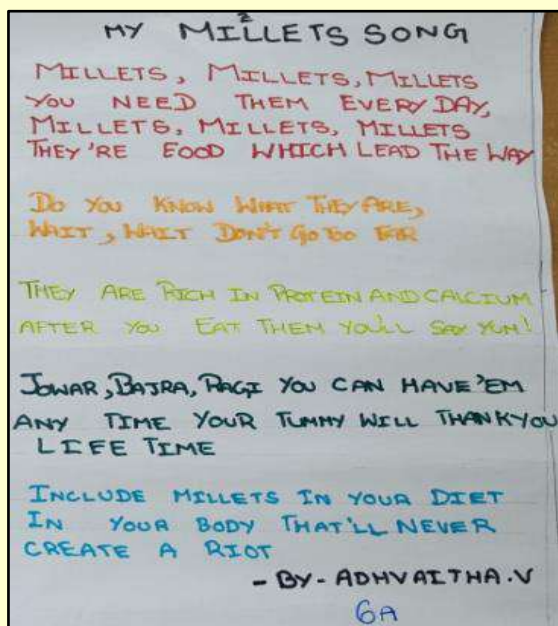 MY MILLETS SONG
MILLETS, MILLETS, MILLETS
YOU NEED THEM EVERY DAY,
MILLETS, MILLETS, MILLETS
THEY'RE FOOD WHICH LEAD THE WAY
DO YOU KNOW WHAT THEY ARE,
WAIT, WAIT DON'T GO TOO FAR
THEY ARE RICH IN PROTEIN AND CALCIUM
AFTER YOU EAT THEM YOU'LL SAY YUM!
JOWAR, BAJRA, RAGI YOU CAN HAVE 'EM
ANY TIME YOUR TUMMY WILL THANK YOU
LIFE TIME
INCLUDE MILLETS IN YOUR DIET
IN YOUR BODY THAT'LL NEVER
CREATE A RIOT
- BY - ADHVAITHA.V
6A